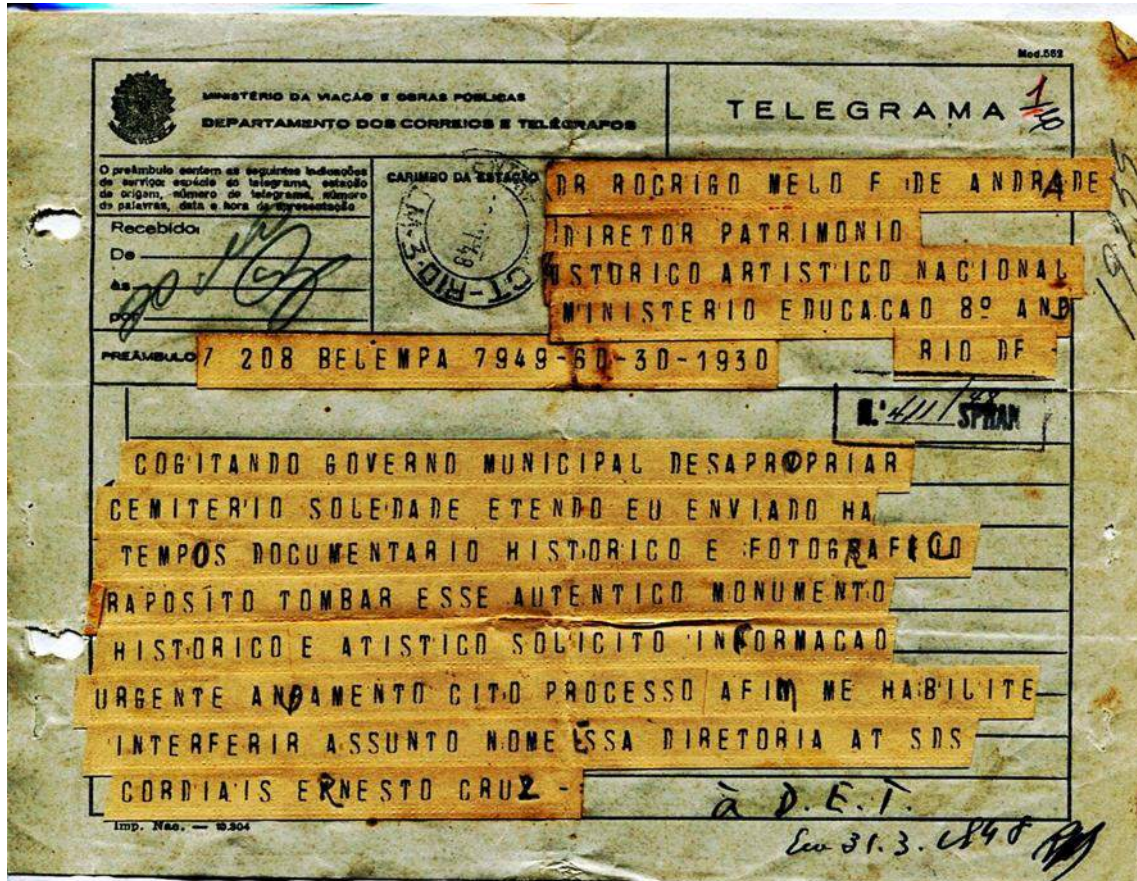 Mod.562
MINISTÉRIO DA VIAÇÃO E OBRAS PÚBLICAS
DEPARTAMENTO DOS CORREIOS E TELÉGRAFOS
TELEGRAMA
O preâmbulo contem as seguintes indicações
de serviço: espécie do telegrama, estação
de origem, número do telegrama, número
de palavras, data e hora da apresentação
CARIMBO DA ESTAÇÃO
Recebido:
De
às
por
DR ROCRIGO MELO F DE ANDRADE
DIRETOR PATRIMONIO
ISTORICO ARTISTICO NACIONAL
MINISTERIO EDUCACAO 8º AND
RIO DF
PREÂMBULO
7 208 BELEMPA 7949-60-30-1930
N.º 411/48 SPHAN
COGITANDO GOVERNO MUNICIPAL DESAPROPRIAR
CEMITERIO SOLEDADE ETENDO EU ENVIADO HA
TEMPOS DOCUMENTARIO HISTORICO E FOTOGRAFICO
RAPOSITO TOMBAR ESSE AUTENTICO MONUMENTO
HISTORICO E ATISTICO SOLICITO INFORMACAO
URGENTE ANDAMENTO CITO PROCESSO AFIM ME HABILITE
INTERFERIR ASSUNTO NOME ESSA DIRETORIA AT SDS
CORDIAIS ERNESTO CRUZ -
à D.E.T.
Em 31.3.1948
Imp. Nac. — 10.204